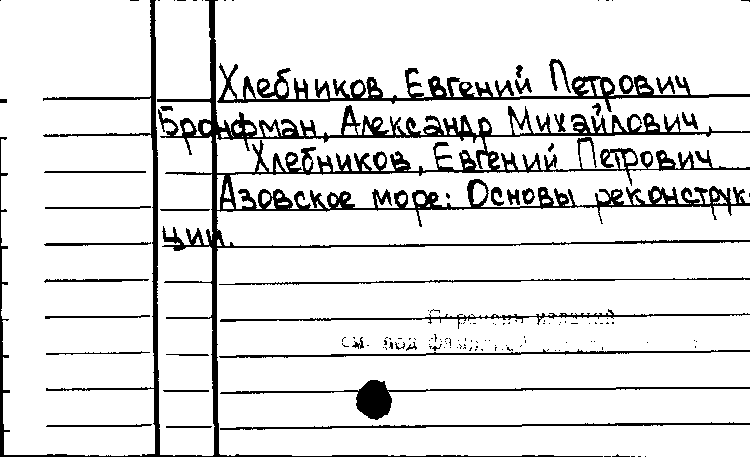 Хлебников, Евгений Петрович
Бронфман, Александр Михайлович,
Хлебников, Евгений Петрович
Азовское море: Основы реконструк-
ции.
Перечень изданий
см. под фамилией